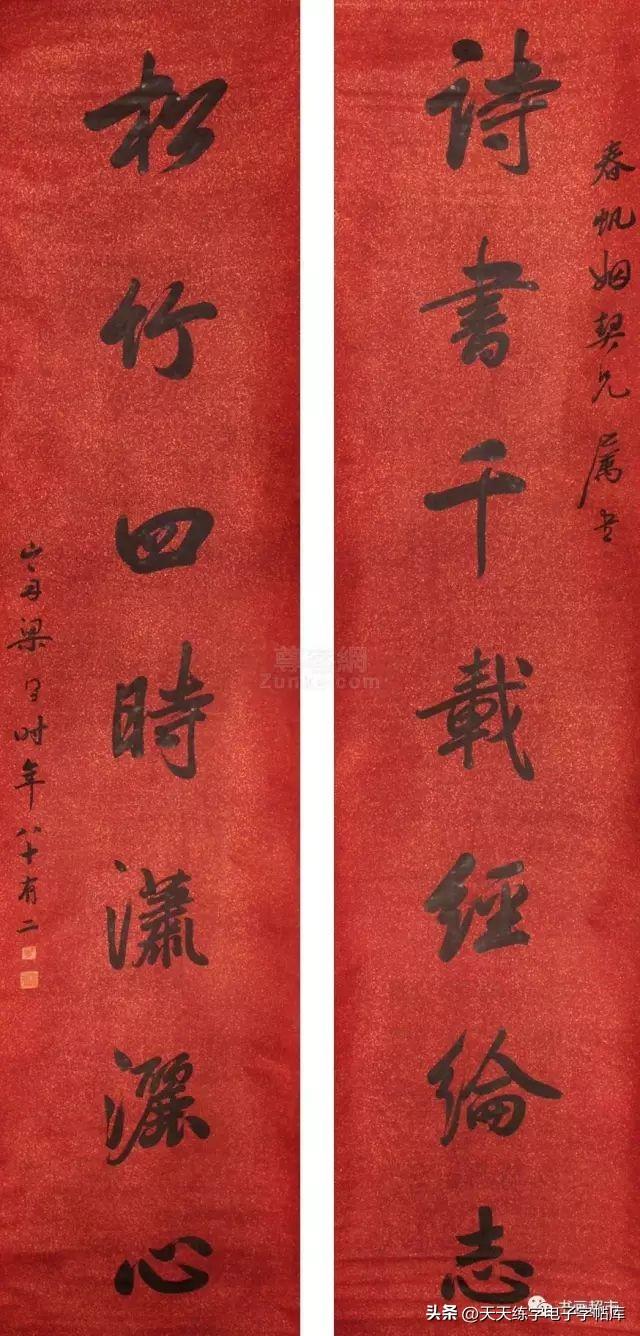 春帆姻契兄属書
詩書千載經綸志
松竹四時瀟灑心
山舟梁同書時年八十有二
尊客網
Zunke.com
书画超市
头条 @天天练字电子字帖库